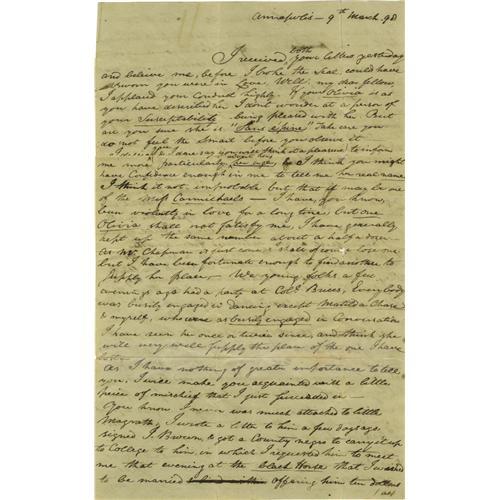 Annapolis - 9th March. 98
I received, both your letters yesterday
and believe me, before I broke the Seal, could have
sworn you were in Love. Well, my dear fellow
I applaud your Conduct highly. If your Olivia is as
you have described her I dont wonder at a person of
your Susceptability being pleased with her But
are you sure she is "Sans epine" Take care you
do not feel the Smart before you observe it
I dare say you would think it a pleasure to inform
me more particularly about her, I think you might
have Confidence enough in me to tell me her real name
I think it not improbable but that it may be one
of the Miss Carmichaels - I have, you know,
been violently in love for a long time, but one
Olivia shall not satisfy me, I have generally
kept up the same number about a half a dozen
as Mr. Chapman is just gone I shall of course lose one
but I have been fortunate enough to find another to
supply her place - We young folks a few
evenings ago had a party at Colo. Buces, Everybody
was busily engaged in Dancing except Matilda Chase
& myself, who were as busily engaged in Conversation
I have seen her once or twice since, and think she
will very well supply the place of the one I have
lost -
As I have nothing of greater importance to tell
you, I will make you acquainted with a little
piece of mischief that I just succeeded in -
You know I never was much attached to little
Magrath, I wrote a letter to him a few days ago
signed J. Brown, & got a Country negro to carry it up
to College to him, in which I requested him to meet
me that evening at the black Horse that I wanted
to be married offering him ten dollars